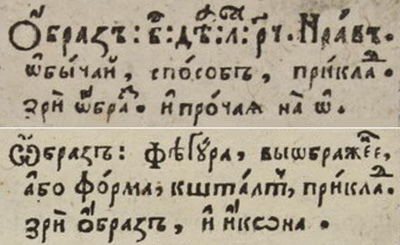 Ѻ҆́бразъ: в҃: дѣꙗ: л҃: рч҃. Нра́въ.
ѡ҆бы́чай, спо́собъ, прикла́ⷣ.
зрѝ ѡ҆бра́ⷥ. и҆ про́чаѧ на̀ ѡ҆.
Ѡ҆́бразъ: Фѣґꙋ́ра, выѡбраже́ⷩ҇е,
а҆́бо фо́рма, кшта́лтъ, прикла́ⷣ.
зрѝ ѻ҆́бразъ, и҆ и҆кѡна.